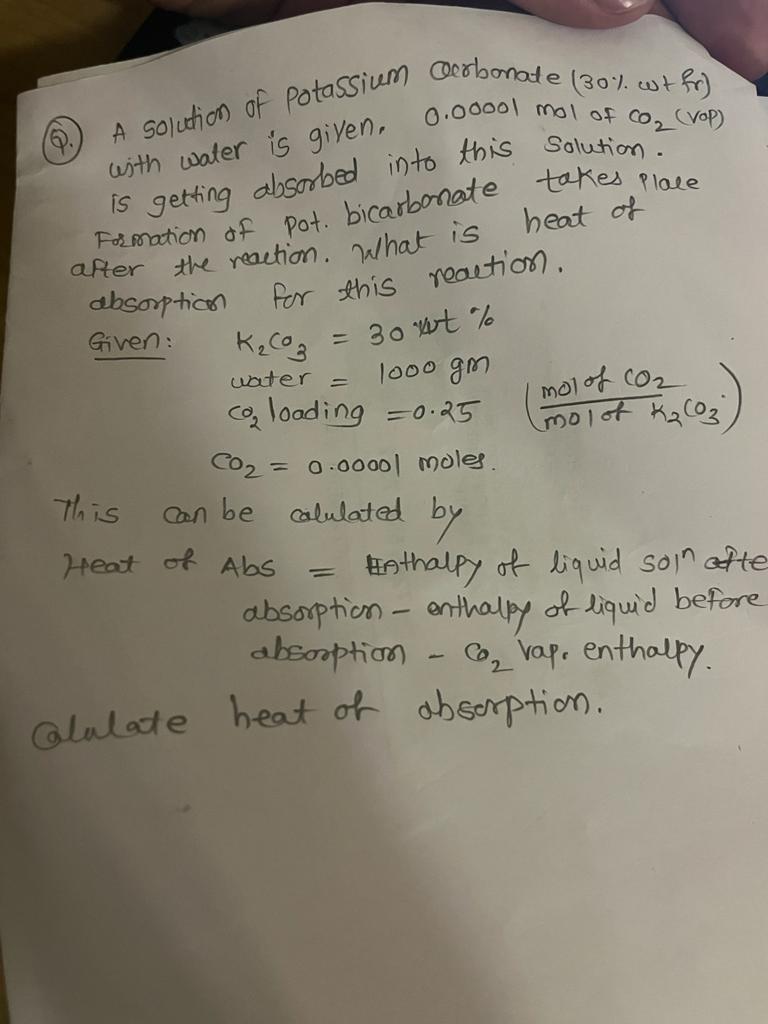 Q. A solution of Potassium Carbonate (30% wt fr)
with water is given. 0.00001 mol of CO2 (vap)
is getting absorbed into this solution.
Formation of Pot. bicarbonate takes place
after the reaction. What is heat of
absorption for this reaction.
Given: K2CO3 = 30 wt %
water = 1000 gm
CO2 loading = 0.25 (mol of CO2 / mol of K2CO3)
CO2 = 0.00001 moles.
This can be calulated by
Heat of Abs = Enthalpy of liquid soln afte
absorption - enthalpy of liquid before
absorption - CO2 Vap. enthalpy.
Calulate heat of absorption.